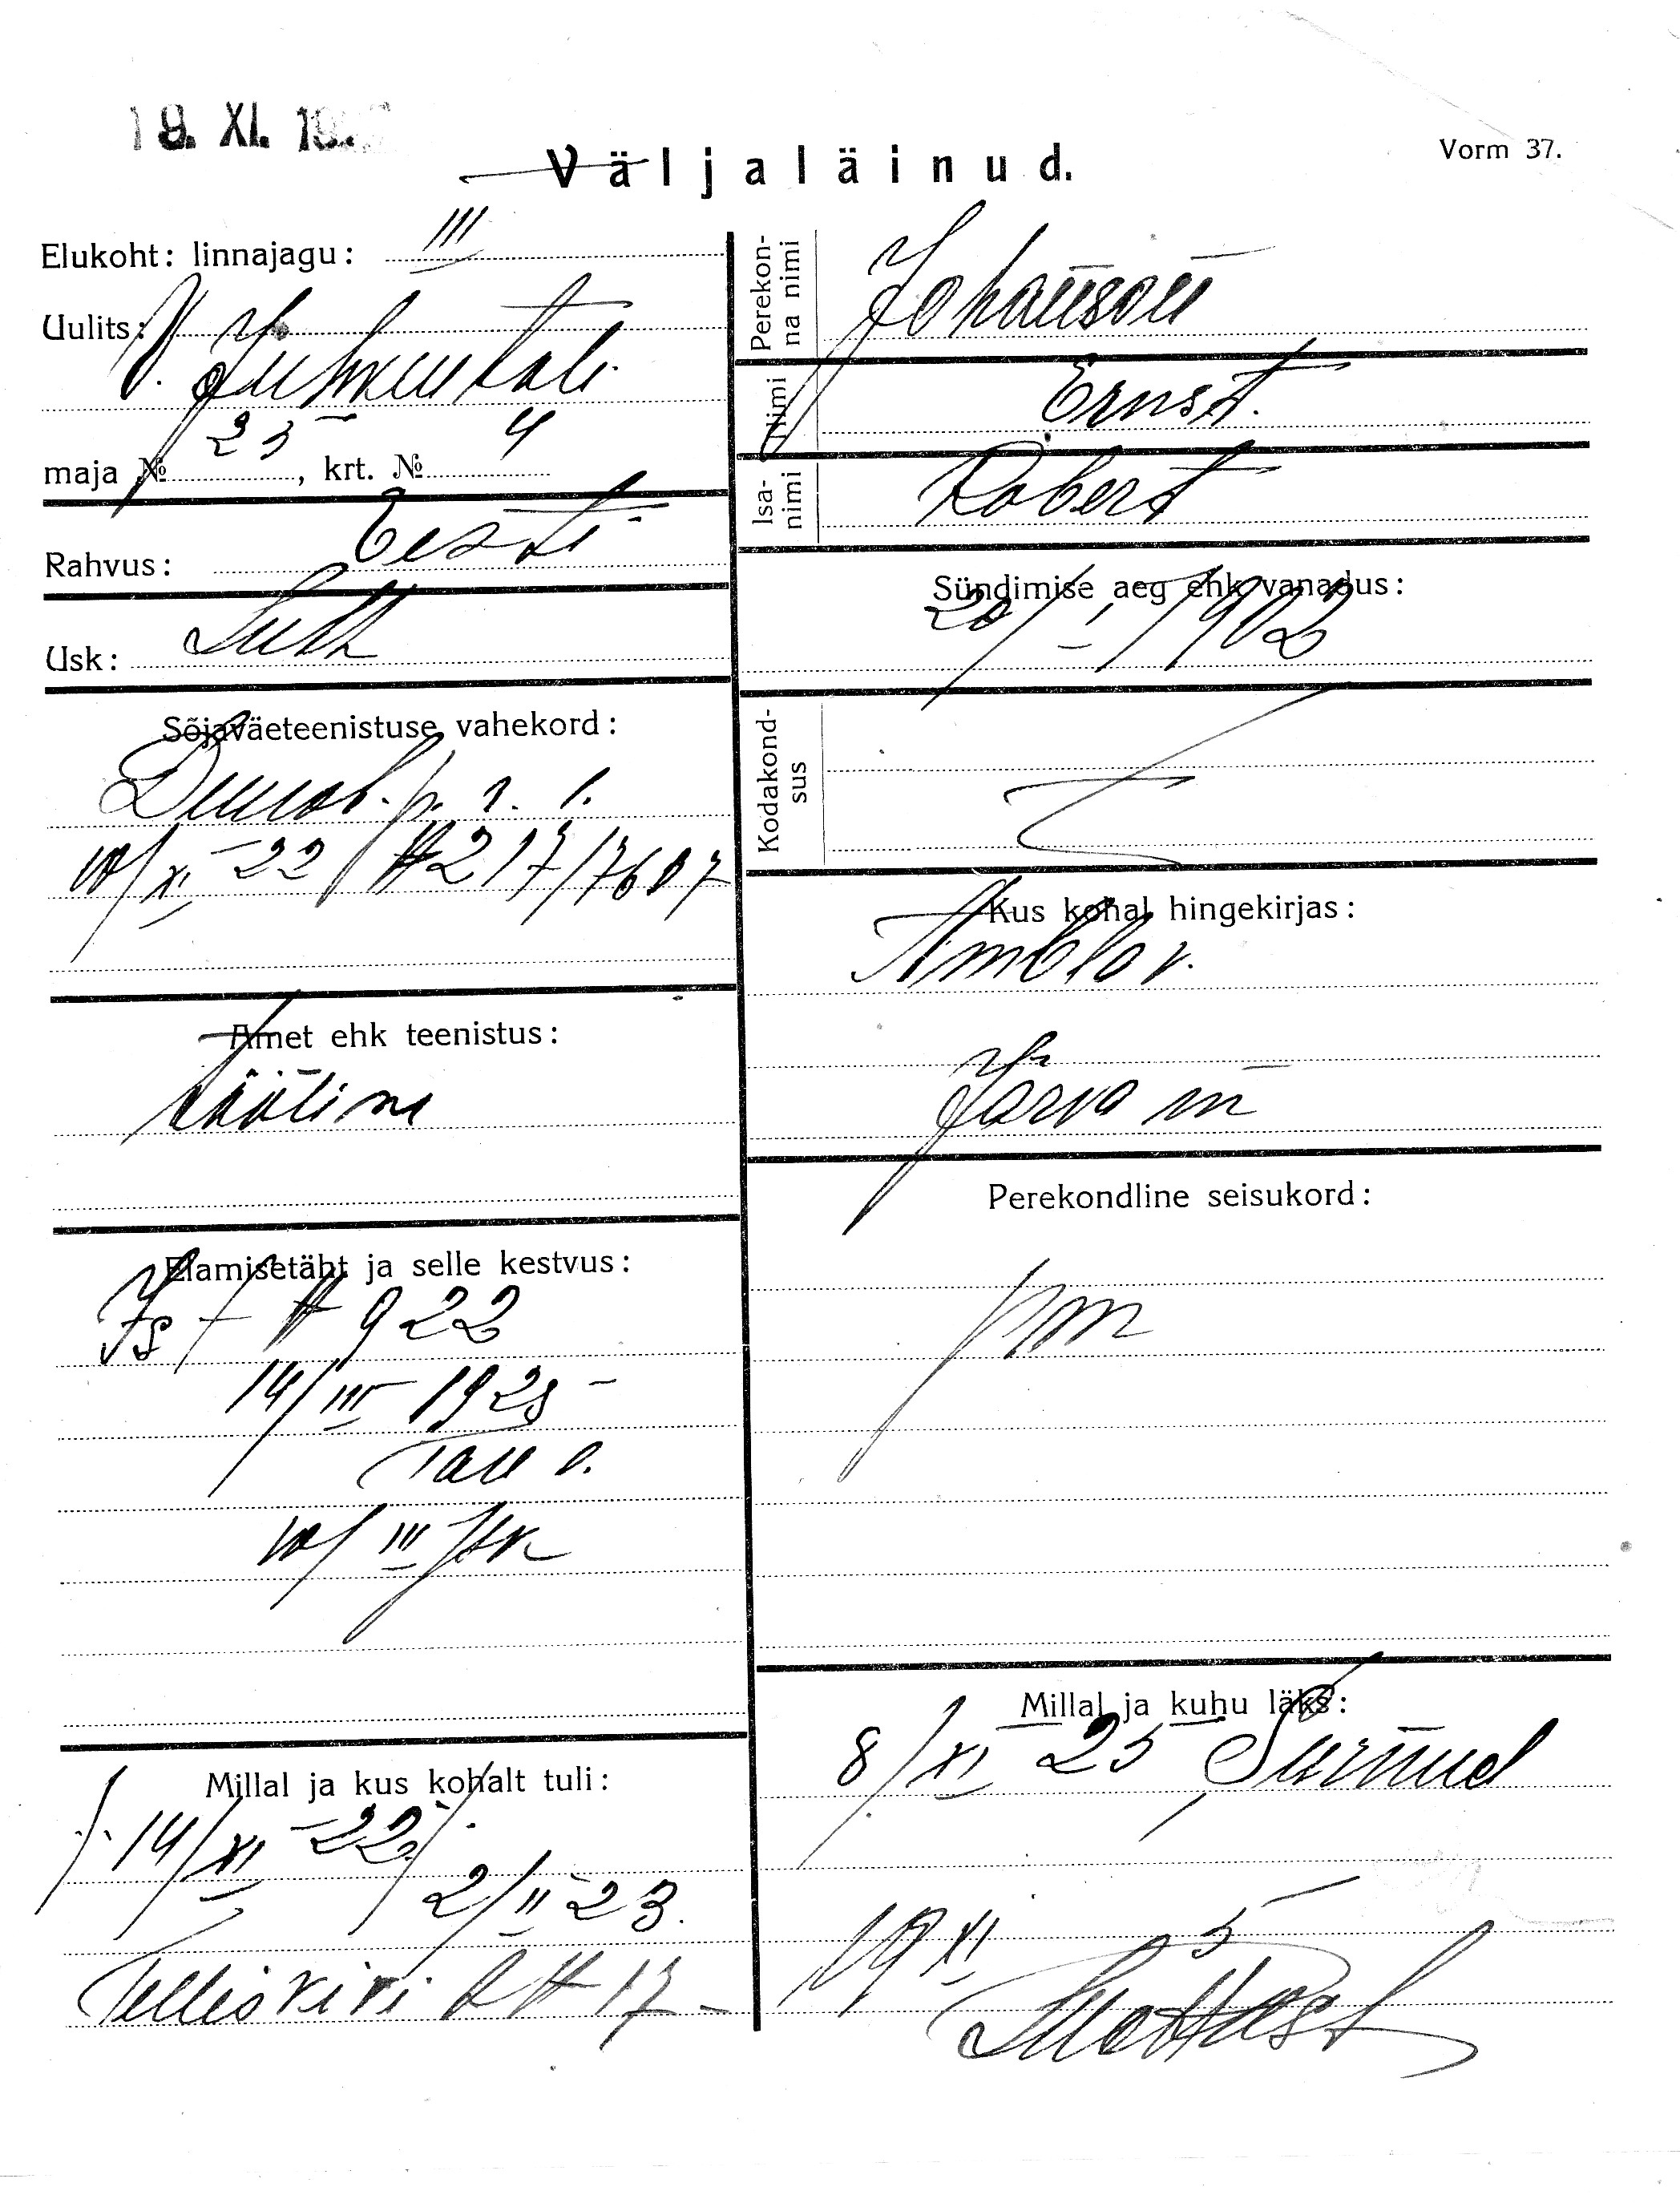 18. XI. 19
Väljaläinud.
Vorm 37.
Elukoht: linnajagu: III
Uulits: V. Juhkentali
maja № 25, krt. № 4
Rahvus: Eesti
Usk: Luth
Sõjaväeteenistuse vahekord:
Demob. p. r. l.
10/XI 22 № 217/7607
Amet ehk teenistus:
tööline
Elamisetäht ja selle kestvus:
№ 922
14/III 1925
Tall.
10/III
Millal ja kus kohalt tuli:
14/XI 22.
2/II 23.
Telliskivi № 17
Perekonna nimi
Johanson
Nimi
Ernst.
Isanimi
Robert
Sündimise aeg ehk vanadus:
20/I 1902
Kodakondsus
Kus kohal hingekirjas:
Ambla v.
Järva m
Perekondline seisukord:
pm
Millal ja kuhu läks:
8/XI 25 Surnud
19 XI 5